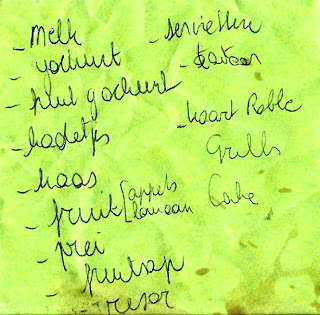 - melk
- yochurt
- fruit yochurt
- kadetjes
- kaas
- fruit [appels
[banaan
- prei
- fruitsap
- tresor
- servietten
- kaart Roble
Grills
Cake